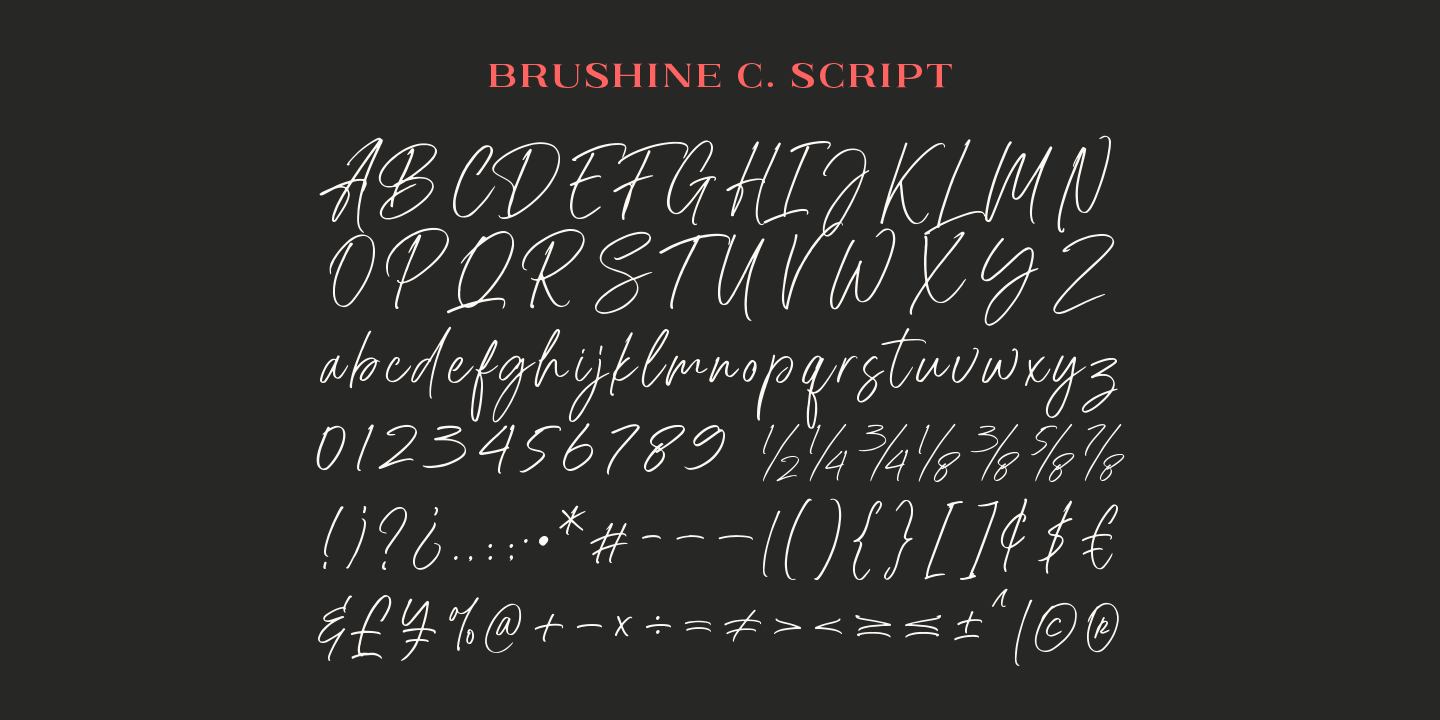 BRUSHINE C. SCRIPT
ABCDEFGHIJKLMN
OPQRSTUVWXYZ
abcdefghijklmnopqrstuvwxyz
0123456789 ½¼¾⅛⅜⅝⅞
!¡?¿.,:;·•*#-–—/(){}[]¢$€
&£¥%@+−×÷=≠><≥≤±^|©®